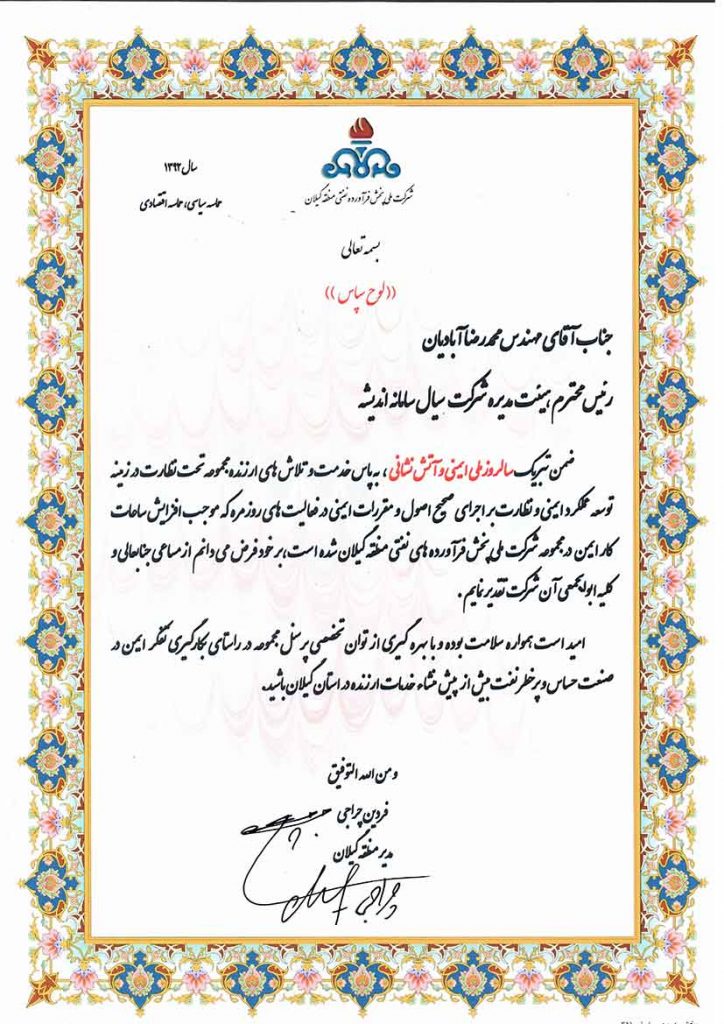 شرکت ملی پخش فرآورده نفتی منطقه گیلان
سال ۱۳۹۲
حماسه سیاسی، حماسه اقتصادی
بسمه تعالی
((لوح سپاس))
جناب آقای مهندس محمدرضا آبادیان
رئیس محترم هیئت مدیره شرکت سیال سامانه اندیشه
ضمن تبریک سالروز ملی ایمنی و آتش نشانی، به پاس خدمت و تلاش های ارزنده مجموعه تحت نظارت در زمینه
توسعه عملکرد ایمنی و نظارت بر اجرای صحیح اصول و مقررات ایمنی در فعالیت های روزمره که موجب افزایش ساعات
کار ایمن در مجموعه شرکت ملی پخش فرآورده های نفتی منطقه گیلان شده است، بر خود فرض می دانم از مساعی جنابعالی و
کلیه ابوابجمعی آن شرکت تقدیر نمایم.
امید است همواره سلامت بوده و با بهره گیری از توان تخصصی پرسنل مجموعه در راستای بکارگیری تفکر ایمن در
صنعت حساس و پرخطر نفت بیش از پیش منشاء خدمات ارزنده در استان گیلان باشید.
و من الله التوفیق
فردین چراجی
مدیر منطقه گیلان